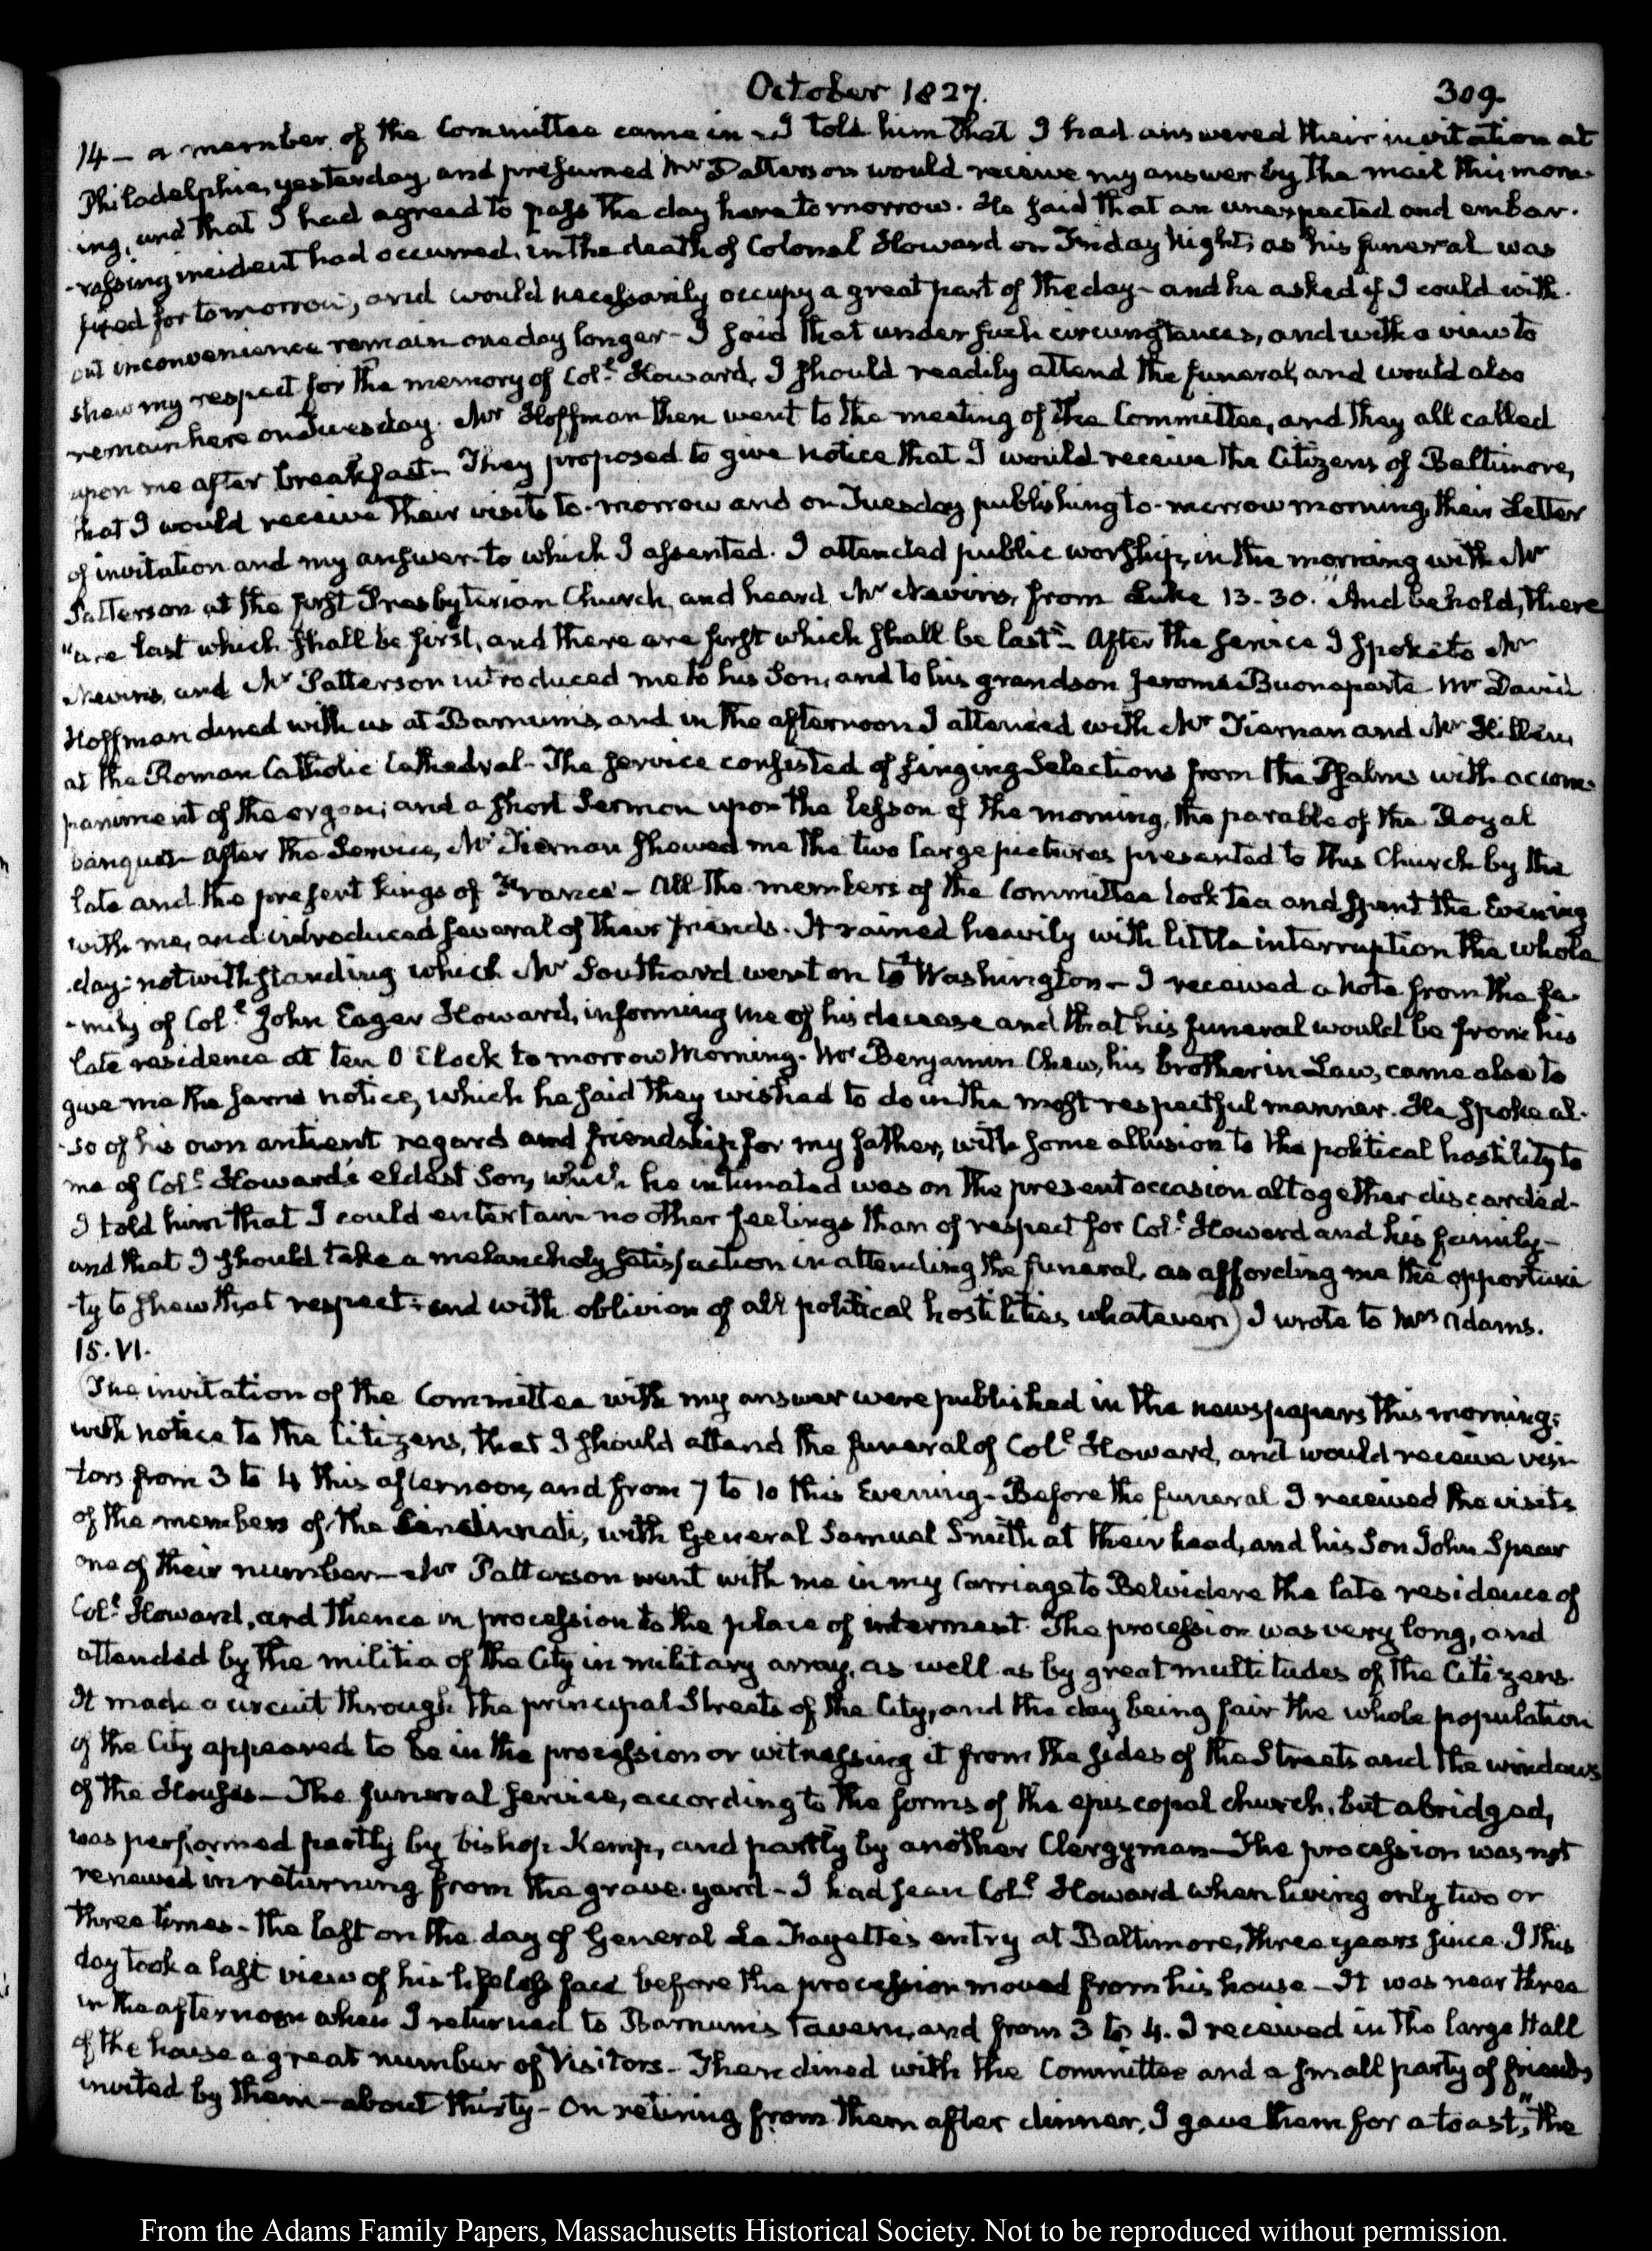 October 1827.
309.
14 — a member of the Committee came in — I told him that I had answered their invitation at
Philadelphia, yesterday, and presumed Mr Patterson would receive my answer by the mail this morn-
ing, and that I had agreed to pass the day here to morrow. He said that an unexpected and embar-
-rassing incident had occurred, in the death of Colonel Howard on Friday Night, as his funeral was
fixed for to morrow, and would necessarily occupy a great part of the day — and he asked if I could with-
out inconvenience remain one day longer — I said that under such circumstances, and with a view to
shew my respect for the memory of Col.l Howard, I should readily attend the funeral, and would also
remain here on Tuesday. Mr Hoffman then went to the meeting of the Committee, and they all called
upon me after breakfast — They proposed to give notice that I would receive the Citizens of Baltimore,
that I would receive their visits to-morrow and on Tuesday publishing to-morrow morning, their Letter
of invitation and my answer to which I assented. I attended public worship, in the morning with Mr
Patterson at the first Presbyterian Church, and heard Mr Nevins, from Luke 13-30. "And behold, there
"are last which shall be first, and there are first which shall be last" — After the service I spoke to Mr
Nevins, and Mr Patterson introduced me to his Son, and to his grandson Jerome Buonaparte — Mr David
Hoffman dined with us at Barnum's, and in the afternoon I attended with Mr Tiernan and Mr Hillen,
at the Roman Catholic Cathedral — The service consisted of singing Selections from the Psalms with accom-
paniment of the organ; and a short Sermon upon the lesson of the morning, the parable of the Royal
banquet — After the Service, Mr Tiernan showed me the two large pictures presented to this Church by the
late and the present kings of France — All the members of the Committee took tea and spent the Evening
with me, and introduced several of their friends. It rained heavily with little interruption the whole
day: notwithstanding which Mr Southard went on to Washington — I received a note from the fa-
-mily of Col.l John Eager Howard, informing me of his decease and that his funeral would be from his
late residence at ten O'Clock to morrow Morning. Mr Benjamin Chew, his brother in Law, came also to
give me the same notice, which he said they wished to do in the most respectful manner. He spoke al-
-so of his own antient regard and friendship for my father, with some allusion to the political hostility to
me of Col.l Howard's eldest Son, which he intimated was on the present occasion altogether discarded —
I told him that I could entertain no other feelings than of respect for Col.l Howard and his family —
and that I should take a melancholy satisfaction in attending the funeral, as affording me the opportuni
-ty to shew that respect: and with oblivion of all political hostilities whatever) I wrote to Mrs Adams.
15. VI.
The invitation of the Committee with my answer were published in the newspapers this morning;
with notice to the Citizens, that I should attend the funeral of Col.l Howard, and would receive visi-
tors from 3 to 4 this afternoon, and from 7 to 10 this Evening — Before the funeral I received the visits
of the members of the Cincinnati, with General Samuel Smith at their head, and his Son John Spear
one of their number — Mr Patterson went with me in my Carriage to Belvidere the late residence of
Col.l Howard, and thence in procession to the place of interment. The procession was very long, and
attended by the militia of the City in military array, as well as by great multitudes of the Citizens.
It made a circuit through the principal Streets of the City, and the day being fair the whole population
of the City appeared to be in the procession or witnessing it from the sides of the Streets and the windows
of the Houses — The funeral service, according to the forms of the episcopal church, but abridged,
was performed partly by bishop Kemp, and partly by another Clergyman — The procession was not
renewed in returning from the grave-yard — I had seen Col.l Howard when living only two or
three times — the last on the day of General La Fayette's entry at Baltimore, three years since. I this
day took a last view of his lifeless face before the procession moved from his house — It was near three
in the afternoon when I returned to Barnum's tavern, and from 3 to 4. I received in the large Hall
of the house a great number of Visitors — Then dined with the Committee and a small party of friends
invited by them — about thirty — On retiring from them after dinner, I gave them for a toast, "The
From the Adams Family Papers, Massachusetts Historical Society. Not to be reproduced without permission.